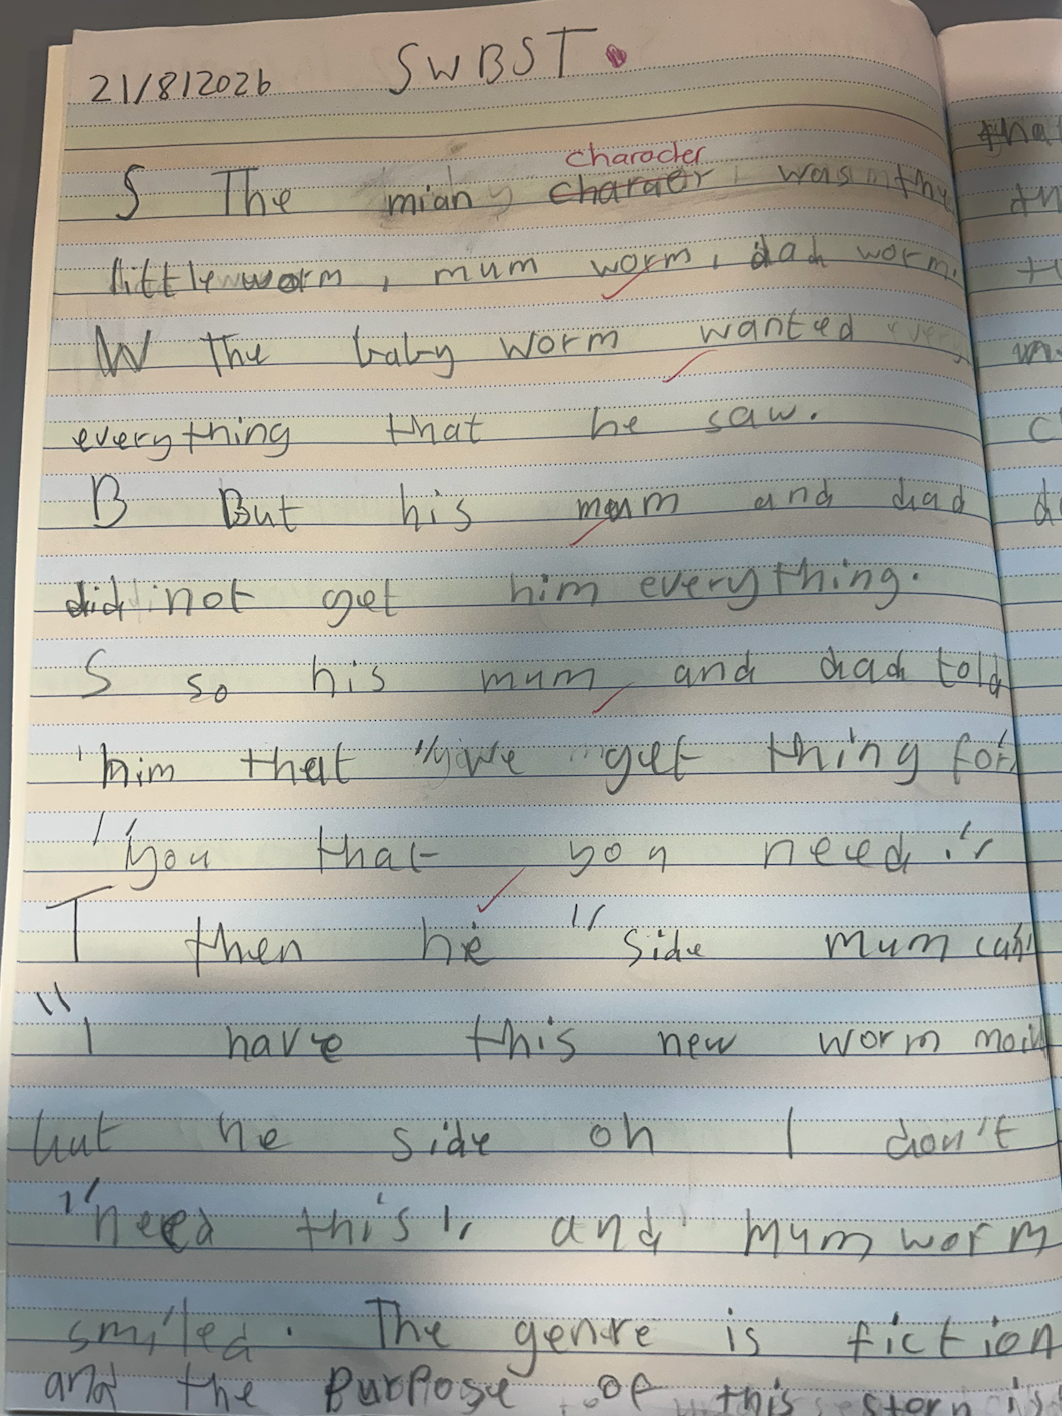 SWBST.
21/8/2026
character
S The miany charaer was the
little worm, mum worm, dad worm.
W The baby worm wanted
everything that he saw.
B But his mum and dad
did not get him everything.
S so his mum and dad told
him that "we get thing for
"you that you need."
T then he "side mum can
"I have this new worm
but he side oh I don't
"need this" and mum worm
smiled. The genre is fiction
and the purpose of this story is